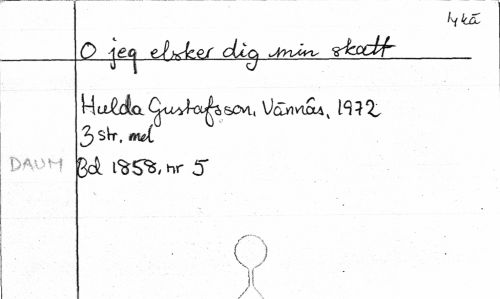 lykä
O jeg elsker dig min skatt
Hulda Gustafsson, Vännäs, 1972
3 str, mel
DAUM Bd 1858, nr 5